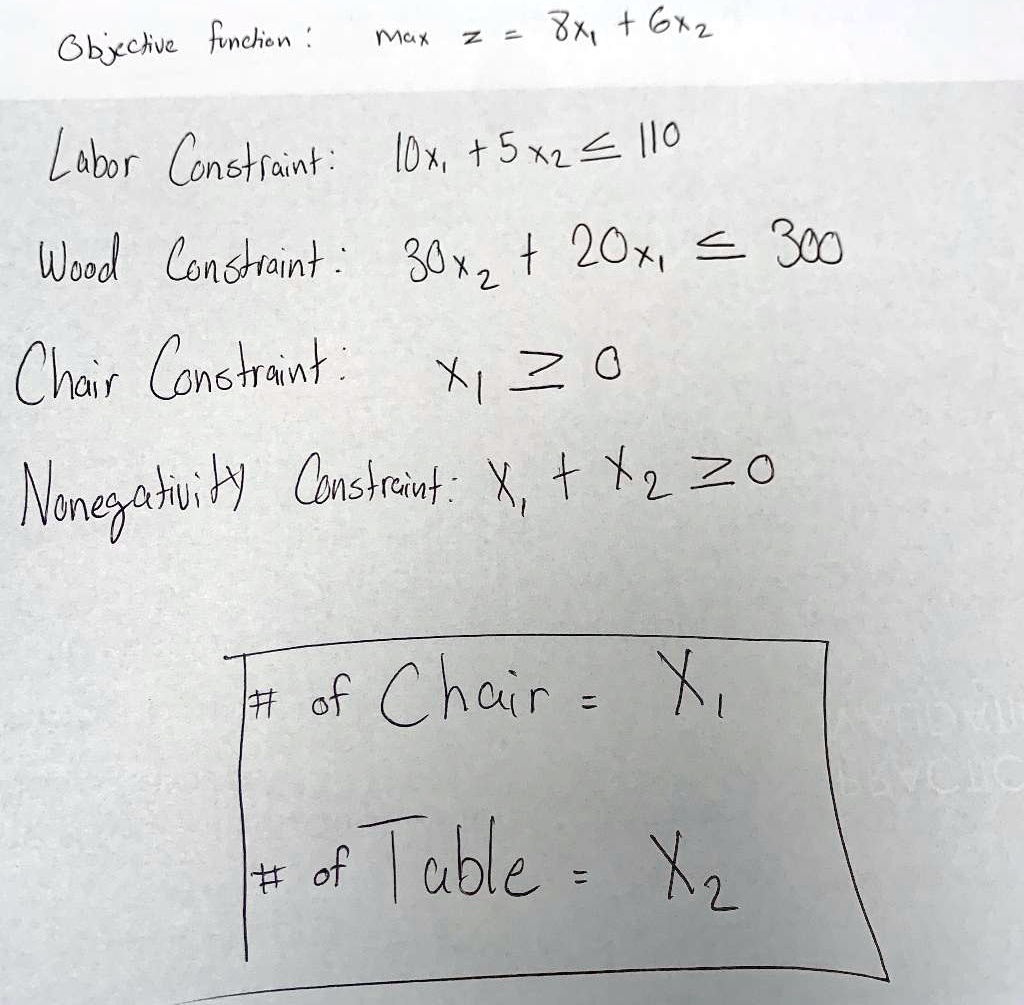 Objective function: max z = 8x₁ + 6x₂
Labor Constraint: 10x₁ + 5x₂ ≤ 110
Wood Constraint: 30x₂ + 20x₁ ≤ 300
Chair Constraint: x₁ ≥ 0
Nonegativity Constraint: X₁ + X₂ ≥ 0
# of Chair = X₁
# of Table = X₂